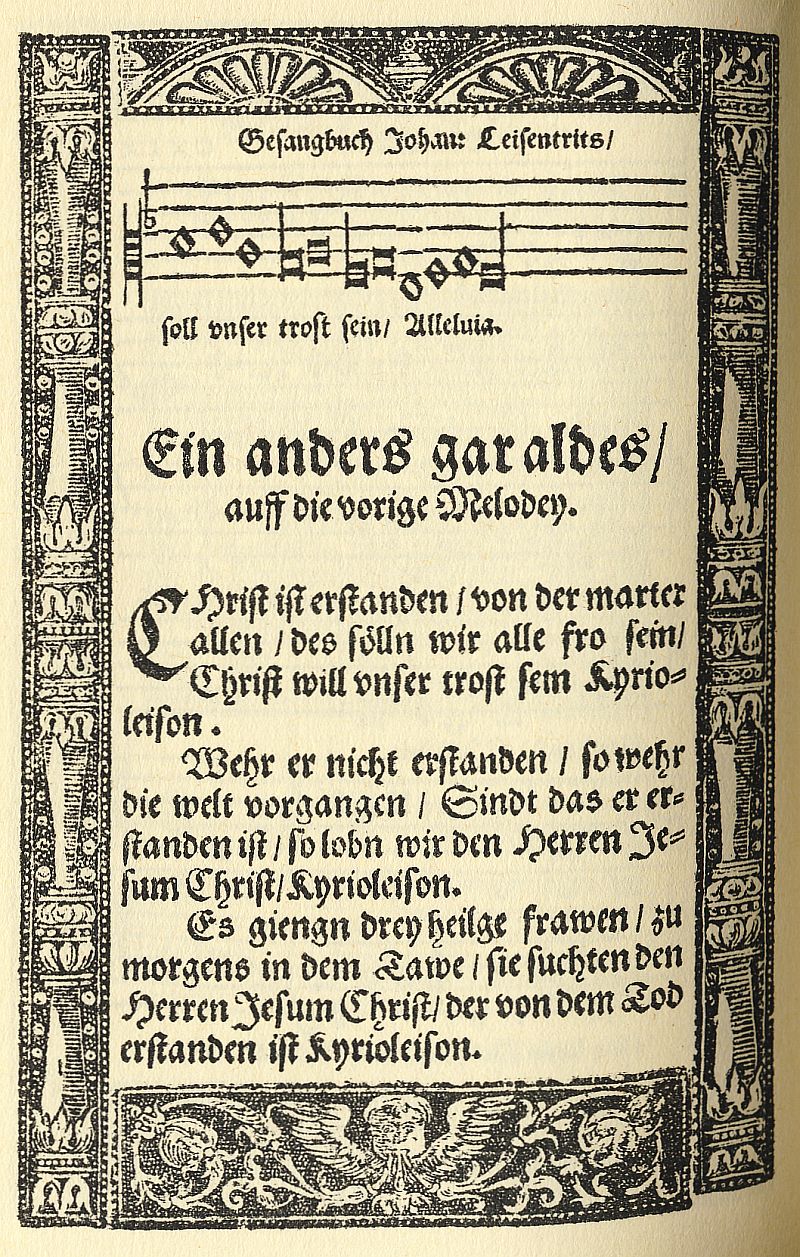 Gesangbuch Johan: Leisentrits/
soll vnser trost sein/ Alleluia.
Ein anders gar aldes/
auff die vorige Melodey.
CHrist ist erstanden / von der marter
allen / des sölln wir alle fro sein/
Christ will vnser trost sein Kyrio=
leison.
Wehr er nicht erstanden / so wehr
die welt vorgangen / Sindt das er er=
standen ist / so lobn wir den Herren Je=
sum Christ/ Kyrioleison.
Es giengn drey heilge frawen / zu
morgens in dem Tawe / sie suchten den
Herren Jesum Christ/ der von dem Tod
erstanden ist Kyrioleison.